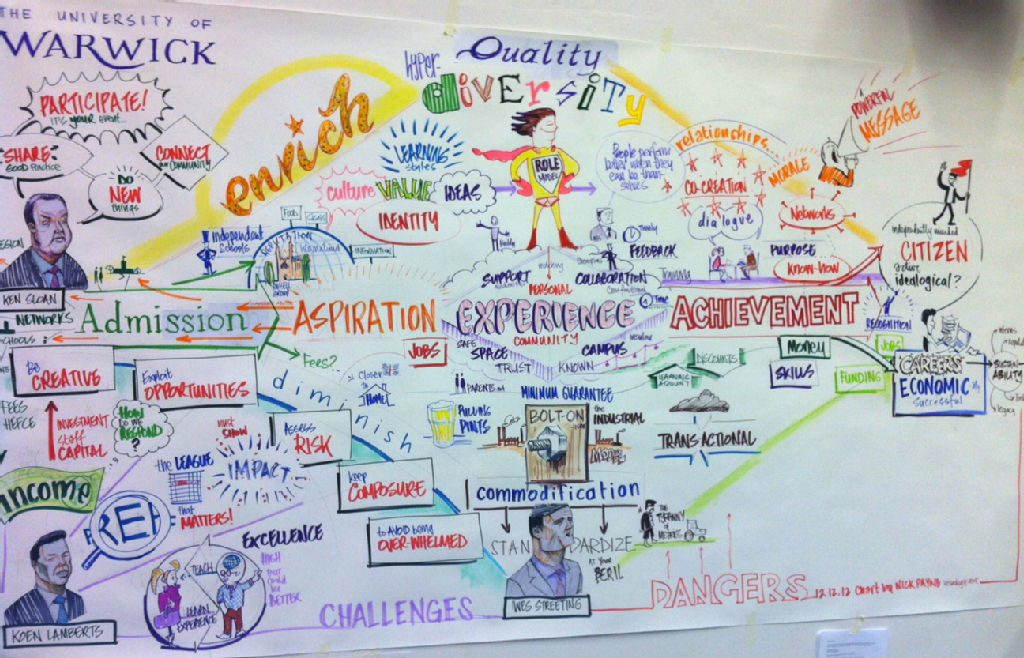 THE UNIVERSITY OF
WARWICK
Quality
hyper-
diversity
enrich
PARTICIPATE!
it's your event...
SHARE
GOOD PRACTICE
CONNECT
COMMUNITY
DO
NEW
things
LEARNING
styles
culture VALUE IDEAS
IDENTITY
ROLE
MODEL
People perform
better when they
can be them-
selves
relationships
CO-CREATION
dialogue
MORALE
POWERFUL
MESSAGE
Networks
independently minded
CITIZEN
idealogical?
KEN SLOAN
NETWORKS
independent
schools
INFORMATION
Admission
ASPIRATION
SUPPORT
PERSONAL
COLLABORATION
FEEDBACK
Training
PURPOSE
KNOW-HOW
EXPERIENCE
COMMUNITY
SAFE
SPACE
TRUST
KNOWN
CAMPUS
ACHIEVEMENT
RECOGNITION
JOBS
CAREERS
ECONOMIC
Successful
Fees?
JOBS
Closer
to
HOME
diminish
PARENTS
MINIMUM GUARANTEE
DISCOUNTS
LEARNING
ACCOUNT
Money
SKILLS
FUNDING
Be
CREATIVE
Exploit
OPPORTUNITIES
FEES
HEFCE
INVESTMENT
Staff
CAPITAL
HOW
DO WE
RESPOND
?
must
SHOW
IMPACT
ASSESS
RISK
PULLING
PINTS
BOLT-ON
the
INDUSTRIAL
TRANSACTIONAL
Income
the LEAGUE
that
MATTERS!
REF
keep
COMPOSURE
commodification
to AVOID being
OVER-WHELMED
EXCELLENCE
TEACH
LEARN
EXPERIENCE
STANDARDIZE
AT YOUR
PERIL
THE
TYRANNY
of
METRICS
KOEN LAMBERTS
CHALLENGES
WES STREETING
DANGERS
12.12.12 Chart by NICK PAYNE